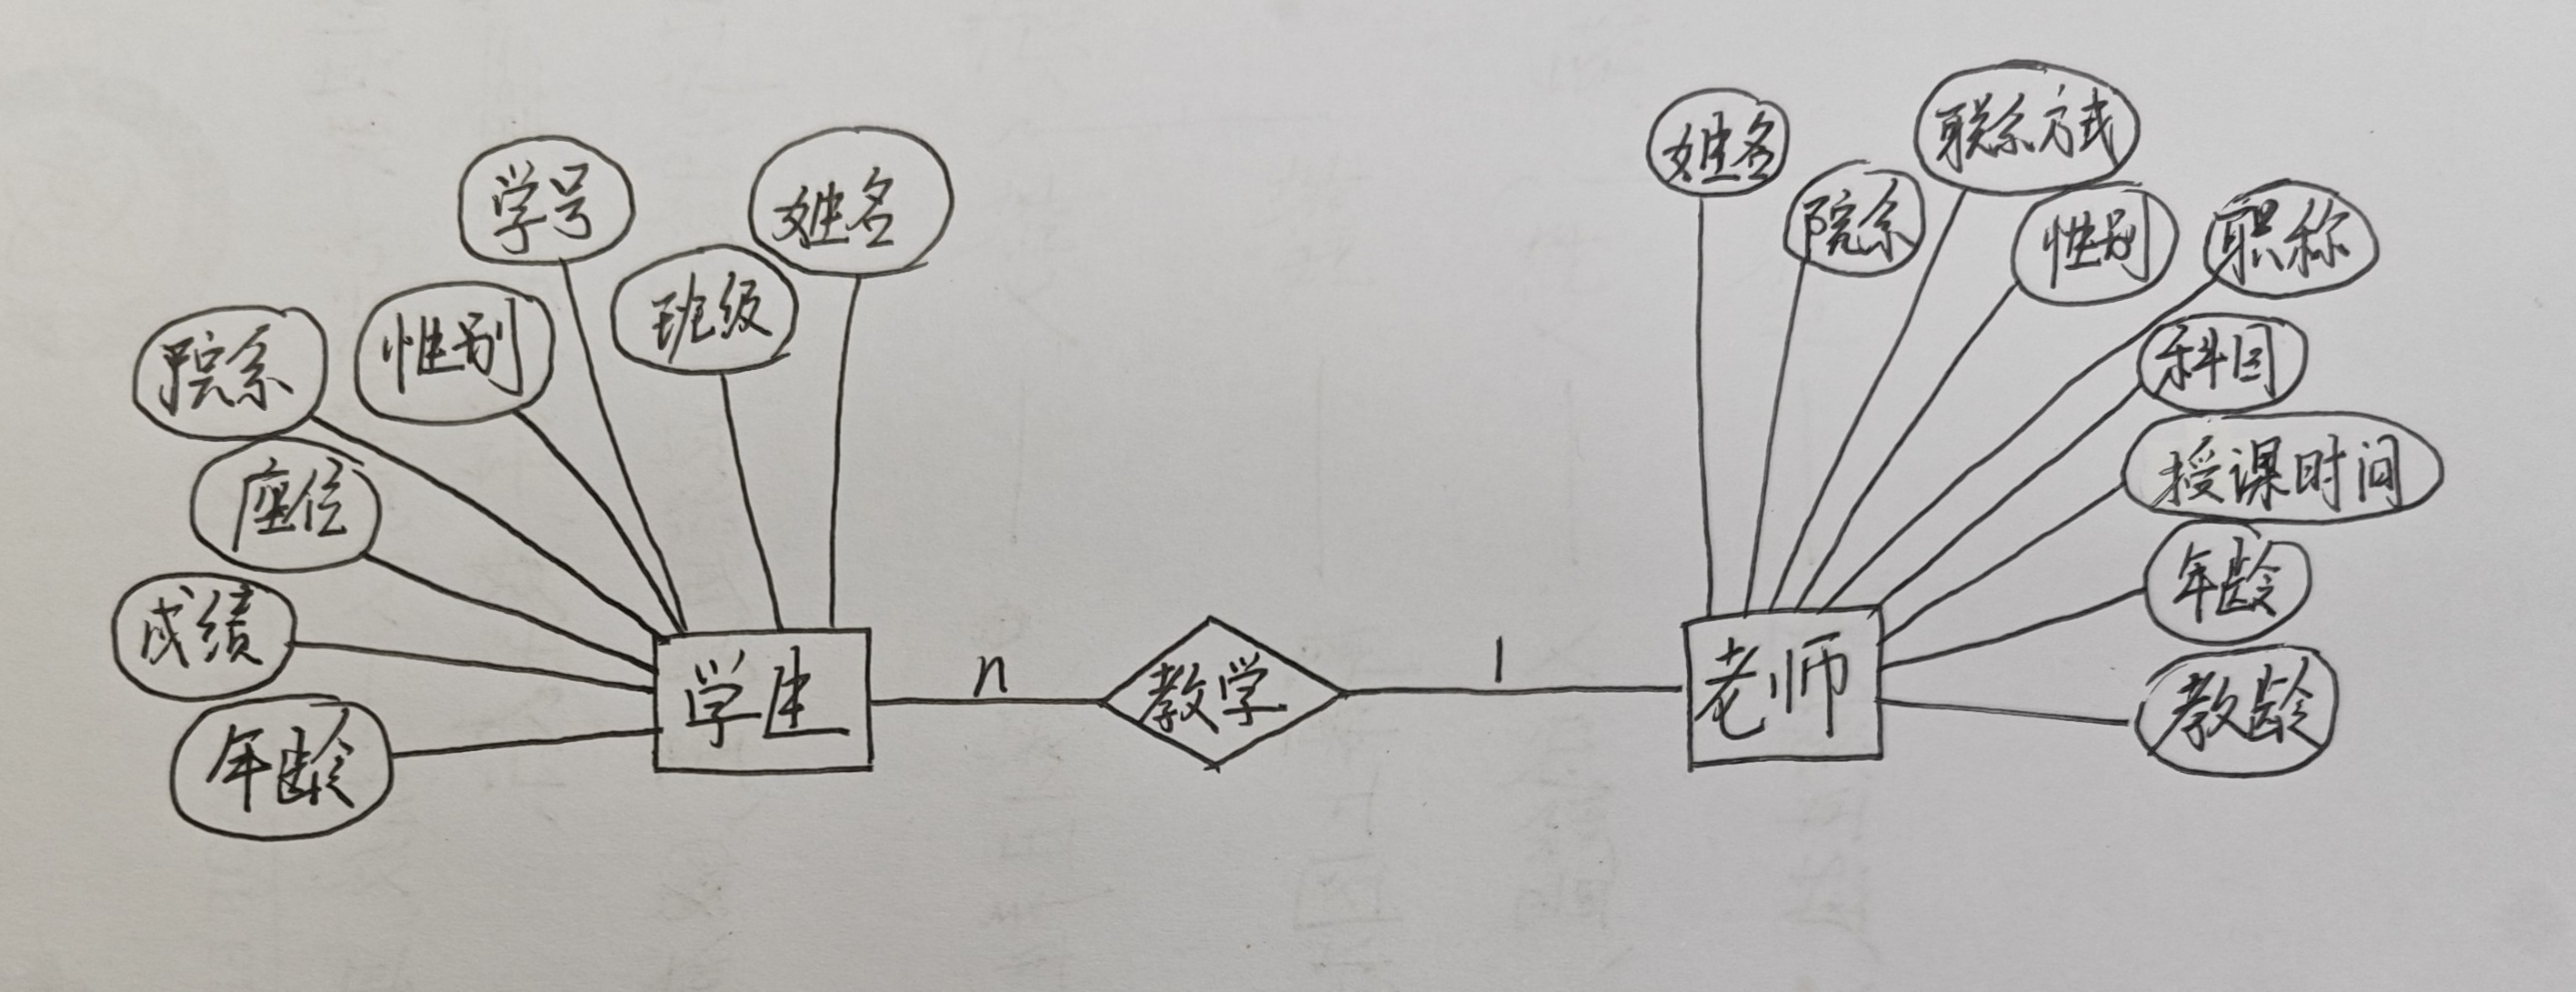 学号
姓名
院系
性别
班级
座位
成绩
年龄
学生
n
教学
1
老师
姓名
院系
联系方式
性别
职称
科目
授课时间
年龄
教龄